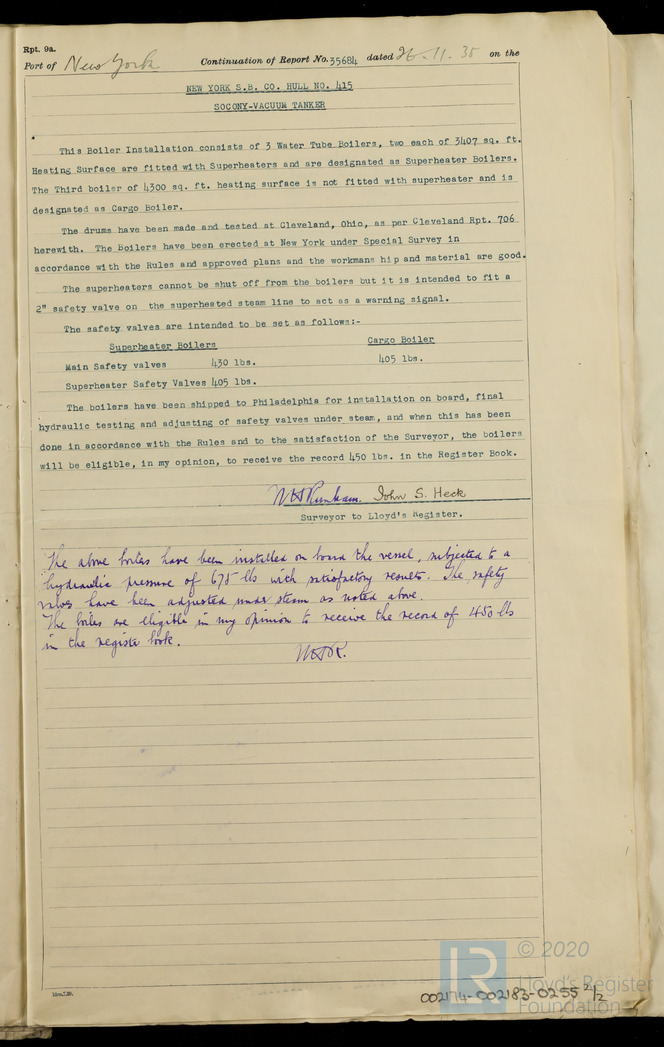 Rpt. 9a.
Port of New York Continuation of Report No. 35684 dated 26.11.35 on the
NEW YORK S.B. CO. HULL NO. 415
SOCONY-VACUUM TANKER
This Boiler Installation consists of 3 Water Tube Boilers, two each of 3407 sq. ft.
Heating Surface are fitted with Superheaters and are designated as Superheater Boilers.
The Third boiler of 4300 sq. ft. heating surface is not fitted with superheater and is
designated as Cargo Boiler.
The drums have been made and tested at Cleveland, Ohio, as per Cleveland Rpt. 706
herewith. The Boilers have been erected at New York under Special Survey in
accordance with the Rules and approved plans and the workmans hip and material are good.
The superheaters cannot be shut off from the boilers but it is intended to fit a
2" safety valve on the superheated steam line to act as a warning signal.
The safety valves are intended to be set as follows:-
Superheater Boilers Cargo Boiler
Main Safety valves 430 lbs. 405 lbs.
Superheater Safety Valves 405 lbs.
The boilers have been shipped to Philadelphia for installation on board, final
hydraulic testing and adjusting of safety valves under steam, and when this has been
done in accordance with the Rules and to the satisfaction of the Surveyor, the boilers
will be eligible, in my opinion, to receive the record 450 lbs. in the Register Book.
John S. Heck
Surveyor to Lloyd's Register.
The above boilers have been installed on board the vessel, subjected to a
hydraulic pressure of 675 lbs with satisfactory results. The safety
valves have been adjusted under steam as noted above.
The boilers are eligible in my opinion to receive the record of 450 lbs
in the register book.
© 2020
Lloyd's Register
Foundation
002174-002183-0255 2/2